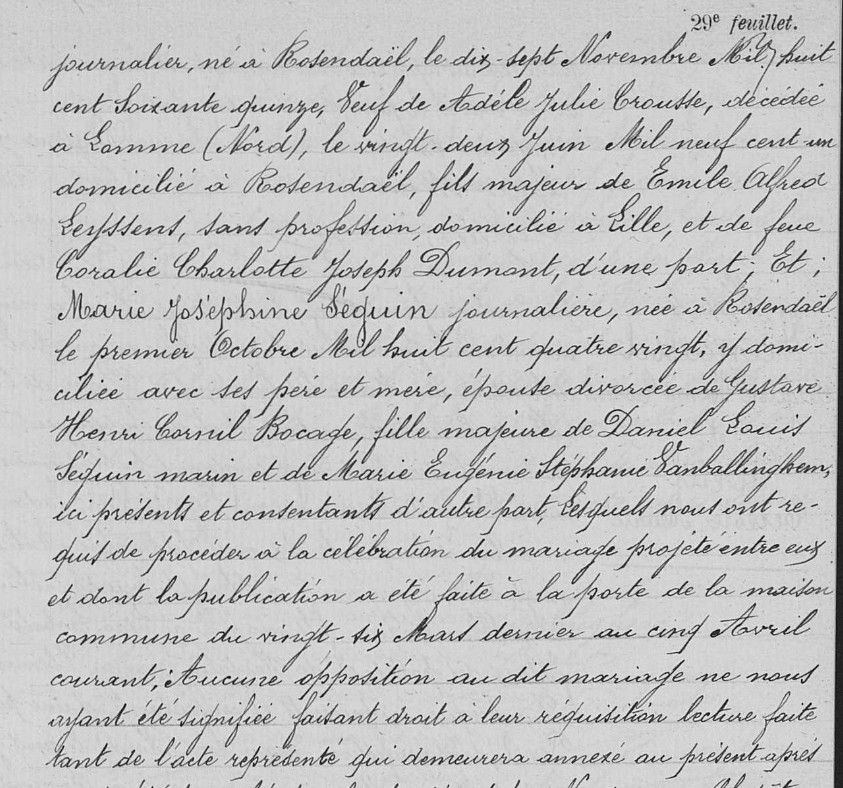 29e feuillet.
journalier, né à Rosendaël, le dix-sept Novembre Mil huit
cent Soixante quinze, Veuf de Adèle Julie Crousse, décédée
à Lomme (Nord), le vingt-deux Juin Mil neuf cent un
domicilié à Rosendaël, fils majeur de Emile Alfred
Leyssens, sans profession, domicilié à Lille, et de feue
Coralie Charlotte Joseph Dumont, d'une part; Et;
Marie Joséphine Séguin journalière, née à Rosendaël
le premier Octobre Mil huit cent quatre vingt, y domi-
ciliée avec ses père et mère, épouse divorcée de Gustave
Henri Cornil Bocage, fille majeure de Daniel Louis
Séguin marin et de Marie Eugénie Stéphanie Vanballinghem,
ici présents et consentants d'autre part, Lesquels nous ont re-
quis de procéder à la célébration du mariage projeté entre eux
et dont la publication a été faite à la porte de la maison
commune du vingt-six Mars dernier au cinq Avril
courant; Aucune opposition au dit mariage ne nous
ayant été signifiée faisant droit à leur réquisition lecture faite
tant de l'acte représenté qui demeurera annexé au présent après